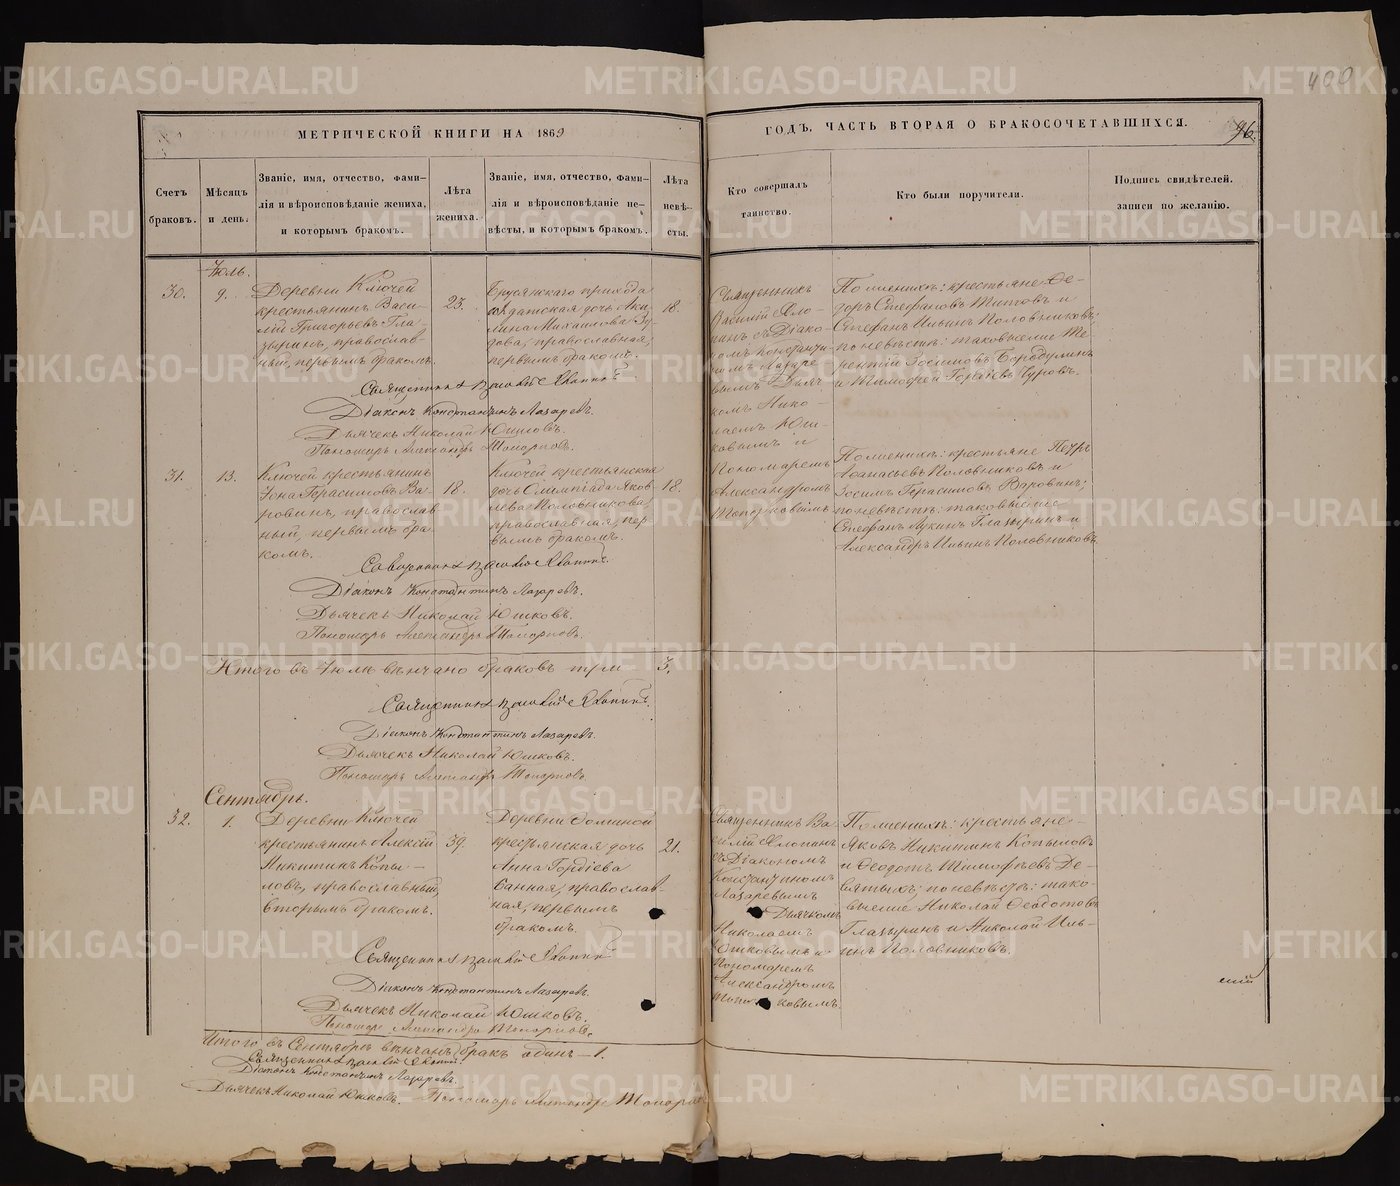 400
МЕТРИЧЕСКОЙ КНИГИ НА 1869
ГОДЪ, ЧАСТЬ ВТОРАЯ О БРАКОСОЧЕТАВШИХСЯ.
96.
Счетъ браковъ.
Мѣсяцъ и день.
Званіе, имя, отчество, фами-
лія и вѣроисповѣданіе жениха,
и которымъ бракомъ.
Лѣта жениха.
Званіе, имя, отчество, фами-
лія и вѣроисповѣданіе не-
вѣсты, и которымъ бракомъ.
Лѣта невѣ-
сты.
Кто совершалъ
таинство.
Кто были поручители.
Подпись свидѣтелей.
записи по желанію.
Іюль.
30.
9.
Деревни Ключей
крестьянинъ Васи-
лій Григорьевъ Гла-
зыринъ, православ-
ный, первымъ бракомъ.
23.
Брусянскаго прихода
солдатская дочь Аку-
лина Михайлова
православная,
первымъ бракомъ.
18.
Священникъ
Василій Яхо-
нинъ съ Діако-
номъ Константи-
номъ Лазаре-
вымъ Дьяч-
комъ Нико-
лаемъ Юш-
ковымъ и
Пономаремъ
Александромъ
Топорковымъ
По женихѣ: крестьяне Ѳе-
доръ Стефановъ Титовъ и
Стефанъ Ильинъ Половниковъ;
по невѣстѣ: таковые же Те-
рентій Зосимовъ Бородулинъ
и Тимофей Гордѣевъ Чуровъ.
Священникъ Василій Яхонинъ
Діаконъ Константинъ Лазаревъ.
Дьячекъ Николай Юшковъ.
Пономарь Александръ Топорковъ.
31.
13.
Ключей крестьянинъ
Іона Герасимовъ Ва-
ровинъ, православ
ный, первымъ бра-
комъ.
18.
Ключей крестьянская
дочь Олимпіада Яков
лева Половникова,
православная, пер
вымъ бракомъ.
18.
По женихѣ: крестьяне Петръ
Аѳанасьевъ Половниковъ и
Зосимъ Герасимовъ Варовинъ;
по невѣстѣ: таковые же
Стефанъ Лукинъ Глазыринъ и
Александръ Ильинъ Половниковъ.
Священникъ Василій Яхонинъ.
Діаконъ Константинъ Лазаревъ.
Дьячекъ Николай Юшковъ.
Пономарь Александръ Топорковъ.
Итого въ Іюлѣ вѣнчано браковъ три
3.
Священникъ Василій Яхонинъ.
Діаконъ Константинъ Лазаревъ.
Дьячекъ Николай Юшковъ.
Пономарь Александръ Топорковъ.
Сентябрь.
32.
1.
Деревни Ключей
крестьянинъ Алексій
Никитинъ Копы-
ловъ, православный,
вторымъ бракомъ.
39.
Деревни
крестьянская дочь
Анна Гордіева
Банная, православ-
ная, первымъ
бракомъ.
21.
Священникъ Ва
силій Яхонинъ
съ Діакономъ
Константиномъ
Лазаревымъ
Дьячкомъ
Николаемъ
Юшковымъ и
Пономаремъ
Александромъ
Топорковымъ
По женихѣ: крестьяне
Яковъ Никитинъ Копыловъ
и Ѳеодотъ Тимофѣевъ Де-
вятыхъ; по невѣстѣ: тако-
вые же Николай Ѳеодотовъ
Глазыринъ и Николай Иль-
инъ Половниковъ.
Священникъ Василій Яхонинъ
Діаконъ Константинъ Лазаревъ.
Дьячекъ Николай Юшковъ.
Пономарь Александръ Топорковъ.
Итого въ Сентябрѣ вѣнчанъ бракъ одинъ — 1.
Священникъ Василій Яхонинъ.
Діаконъ Константинъ Лазаревъ.
Дьячекъ Николай Юшковъ. Пономарь Александръ Топорковъ
METRIKI.GASO-URAL.RU